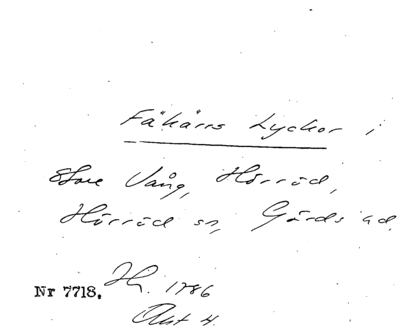 Fäkärrs Lyckor i
Store Vång, Hörröd,
Hörröd sn, Gärds hd.
Nr 7718. H. 1786
Akt 4.